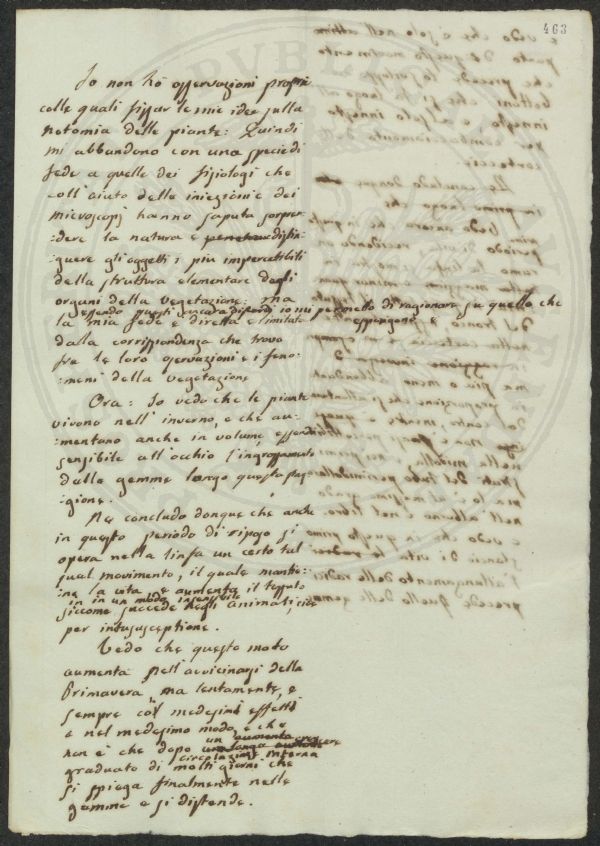 463
Io non hò osservazioni proprie
colle quali fissar le mie idee sulla
notomia delle piante: Quindi
mi abbandono con una specie di
fede a quelle dei fisiologi che
coll'aiuto delle iniezioni e dei
microscopj hanno saputo sorpren-
:dere la natura e penetrare distin-
:guere gli oggetti i più impercetibili
della struttura elementare degli
organi della vegetazione: ma
essendo questi ancora discordi io mi permetto di ragionare su quello che
espongono e
la mia fede è diretta e limitata
dalla corrispondenza che trovo
fra le loro osservazioni e i feno-
:meni della vegetazione
Ora: Io vedo che le piante
vivono nell'inverno, e che au-
:mentano anche in volume essendo
sensibile all'occhio l'ingrossamento
delle gemme lungo questa sta-
:gione.
Ne concludo donque che anche
in questo periodo di riposo si
opera nella linfa un certo tal
qual movimento, il quale mantie-
:ne la vita e aumenta il tessuto
in un modo insensibile
siccome succede negli animali, cioè
per intususceptione.
Vedo che questo moto
aumenta nell'avvicinarsi della
Primavera, ma lentamente, e
sempre coi medesimi effetti
e nel medesimo modo, e che
non è che dopo un aumento
graduato di circolazione interna
molti giorni che
si spiega finalmente nelle
gemme e si distende.